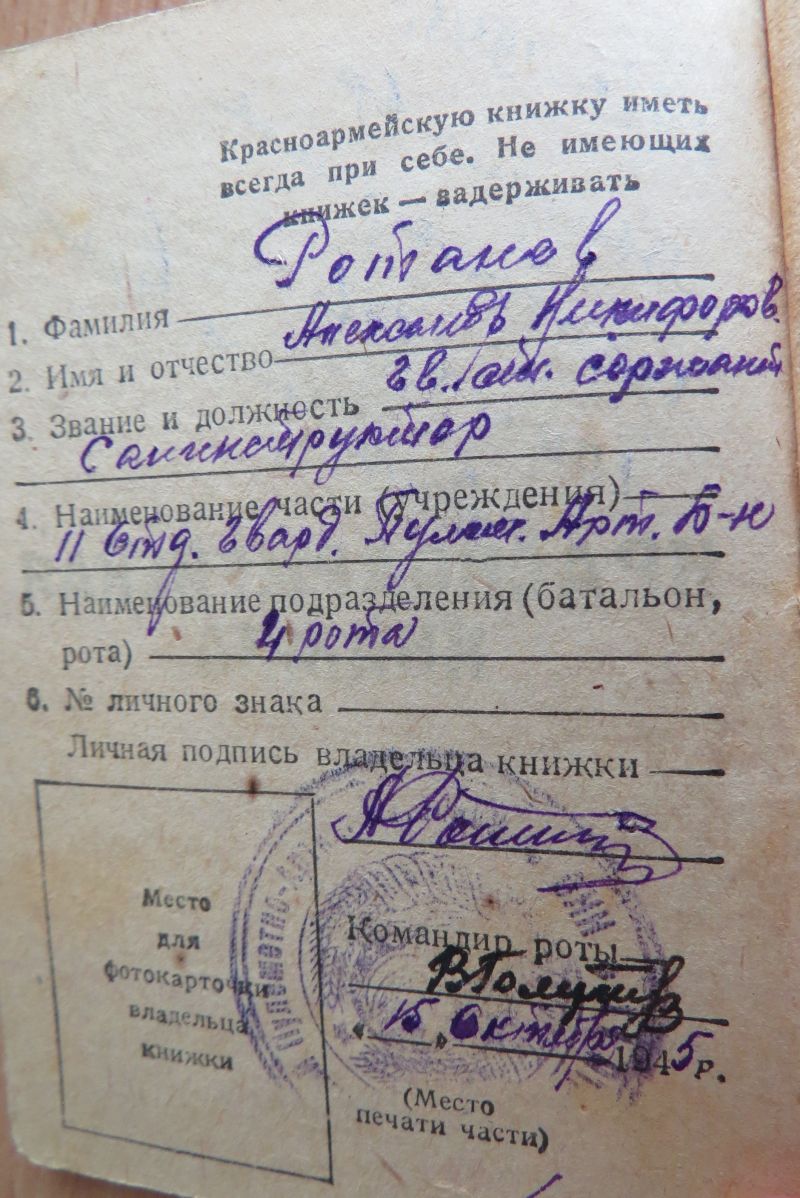 Красноармейскую книжку иметь
всегда при себе. Не имеющих
книжек — задерживать
1. Фамилия Ротанов
2. Имя и отчество Александр Никифоров.
3. Звание и должность Гв. ст. сержант
Санинструктор
4. Наименование части (учреждения)
11 Отд. Гвард. Пулем. Арт. Б-н
5. Наименование подразделения (батальон,
рота) 4 рота
6. № личного знака
Личная подпись владельца книжки
Место
для
фотокарточки
владельца
книжки
Командир роты
« 15 » Октября 1945 г.
(Место
печати части)